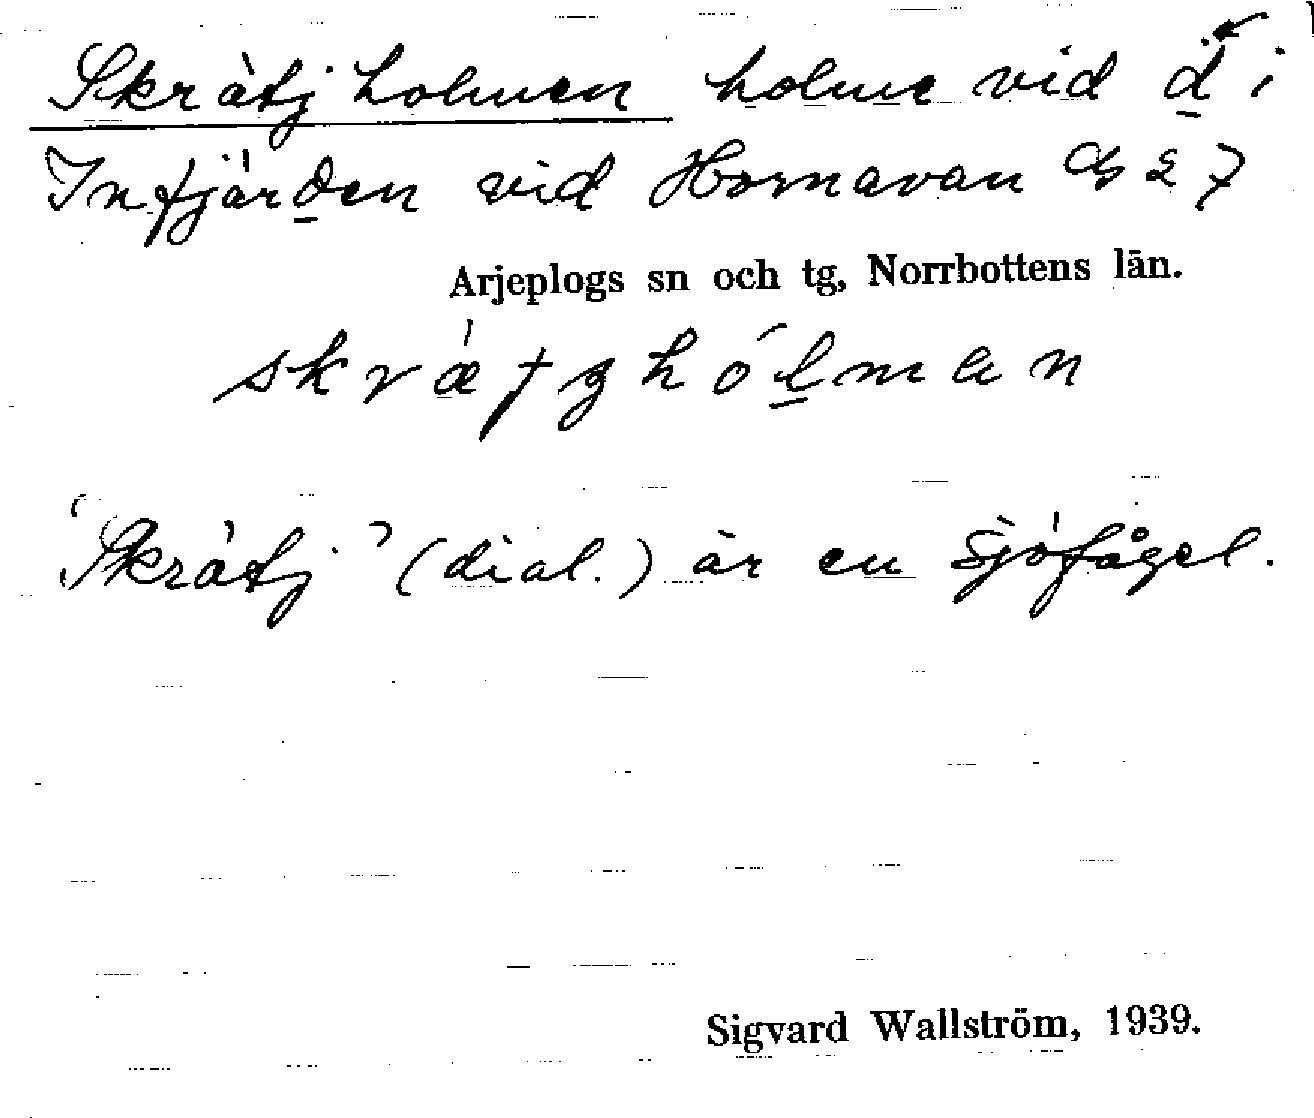 Skrätjholmen holme vid d i
Infjärden vid Hornavan G 2 7
Arjeplogs sn och tg, Norrbottens län.
"Skrätj" (dial.) är en sjöfågel.
Sigvard Wallström, 1939.